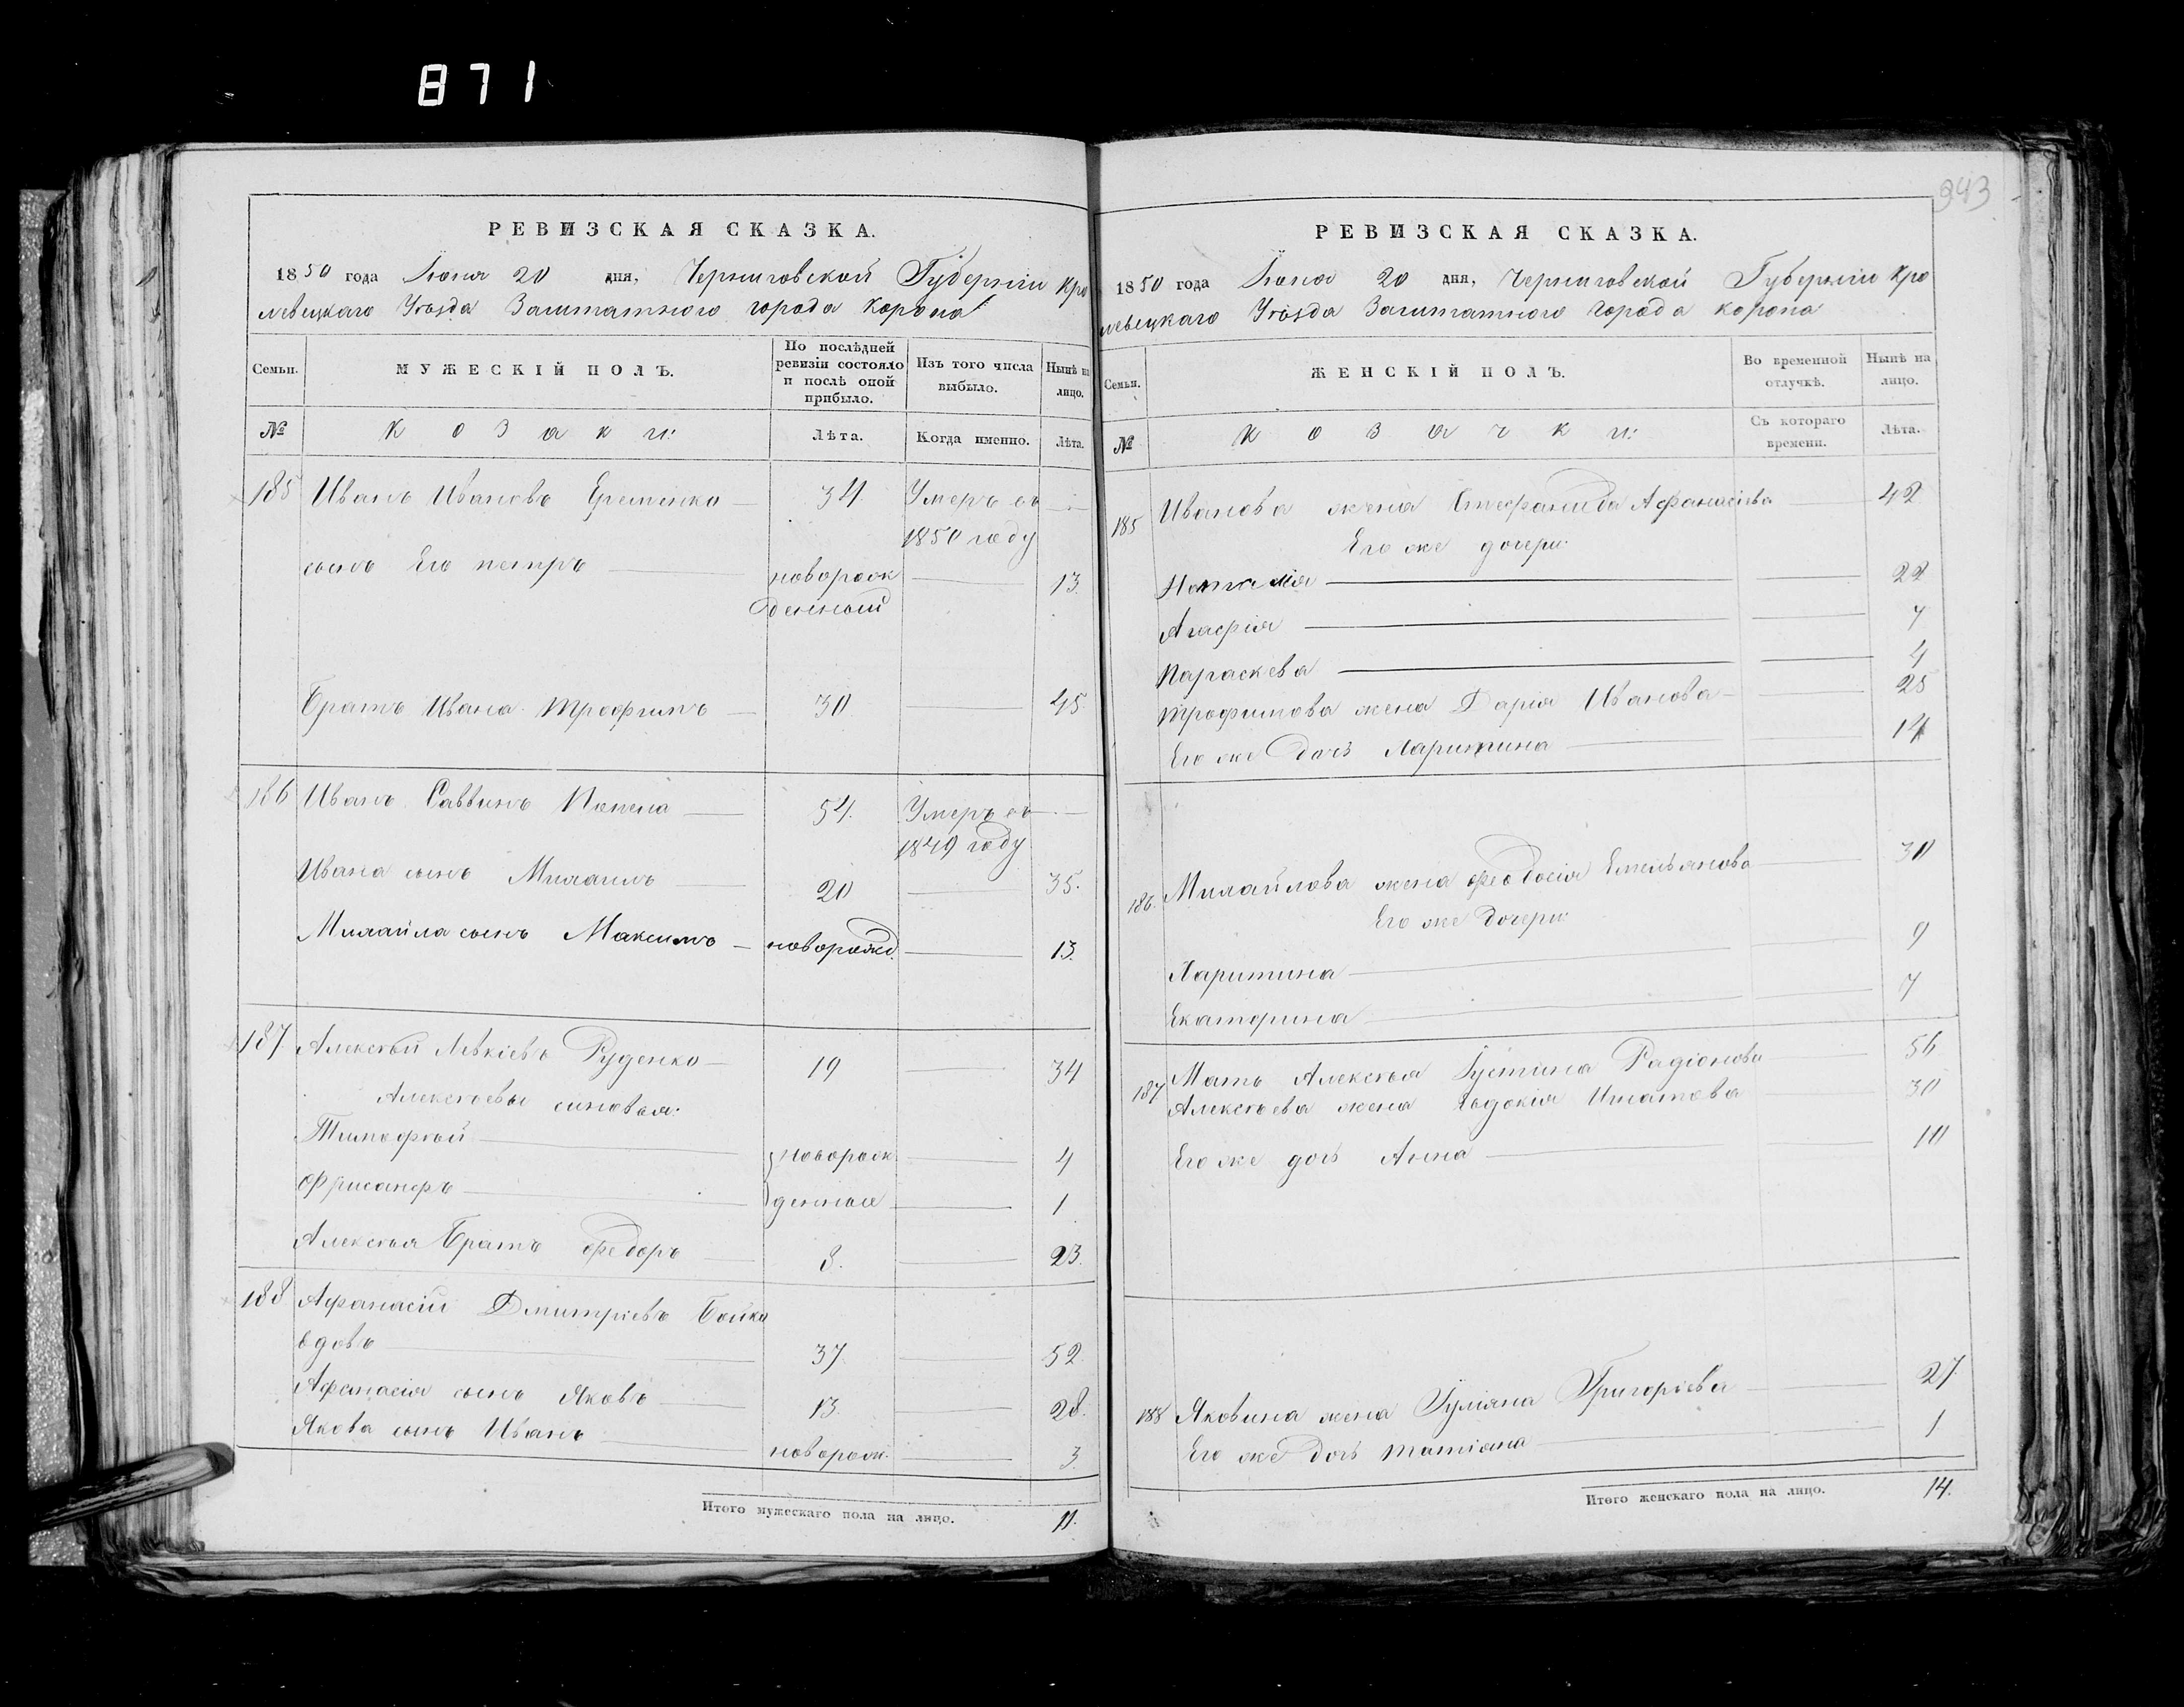 871
943
РЕВИЗСКАЯ СКАЗКА.
1850 года Іюня 20 дня, Черниговской Губерніи Кро
левецкаго Уѣзда Заштатного города Коропа
Семьи.
МУЖЕСКІЙ ПОЛЪ.
По послѣдней ревизіи состояло и послѣ оной прибыло.
Изъ того числа выбыло.
Нынѣ на лицо.
№
Козаки:
Лѣта.
Когда именно.
Лѣта.
185 Иванъ Ивановъ Еременко — 34 Умеръ въ —
1850 году
сынъ Его петръ — новорож — 13.
денный
Братъ Ивана Трофимъ — 30 — 45
186 Иванъ Саввинъ — 54. Умеръ въ —
1849 году
Ивана сынъ Михаилъ — 20 — 35.
Михайла сынъ Максимъ — новорожд. — 13.
187 Алексѣй Руденко — 19 — 34
Алексѣевы сыновья:
Тимофѣй — новорож — 4
— денные — 1
Алексѣя Братъ Федоръ — 8. — 23.
188 Афанасій Дмитріевъ Бойко
вдовъ — 37. — 52.
Афанасія сынъ Яковъ — 13. — 28.
Якова сынъ Иванъ — новорож. — 3.
Итого мужескаго пола на лицо. 11.
РЕВИЗСКАЯ СКАЗКА.
1850 года Іюня 20 дня, Черниговской Губерніи Кро
левецкаго Уѣзда Заштатного города Коропа
Семьи.
ЖЕНСКІЙ ПОЛЪ.
Во временной отлучкѣ.
Нынѣ на лицо.
№
Козачки:
Съ котораго времени.
Лѣта.
185 Иванова жена Стефанида Афанасіева — 42
Его же дочери:
Наталія — 22
Агафія — 7
Параскева — 4
Трофимова жена Дарія Иванова — 25
Его же дочь Харитина — 14
186. Михайлова жена Феодосія Емельянова — 30
Его же дочери:
Харитина — 9
Екатерина — 7
187 Мать Алексѣя Іустина Радіонова — 56
Алексѣева жена Евдокія Игнатова — 30
Его же дочь Анна — 10
188 Яковина жена Іуліяна Григоріева — 27.
Его же дочь Татіяна — 1
Итого женскаго пола на лицо. 14.